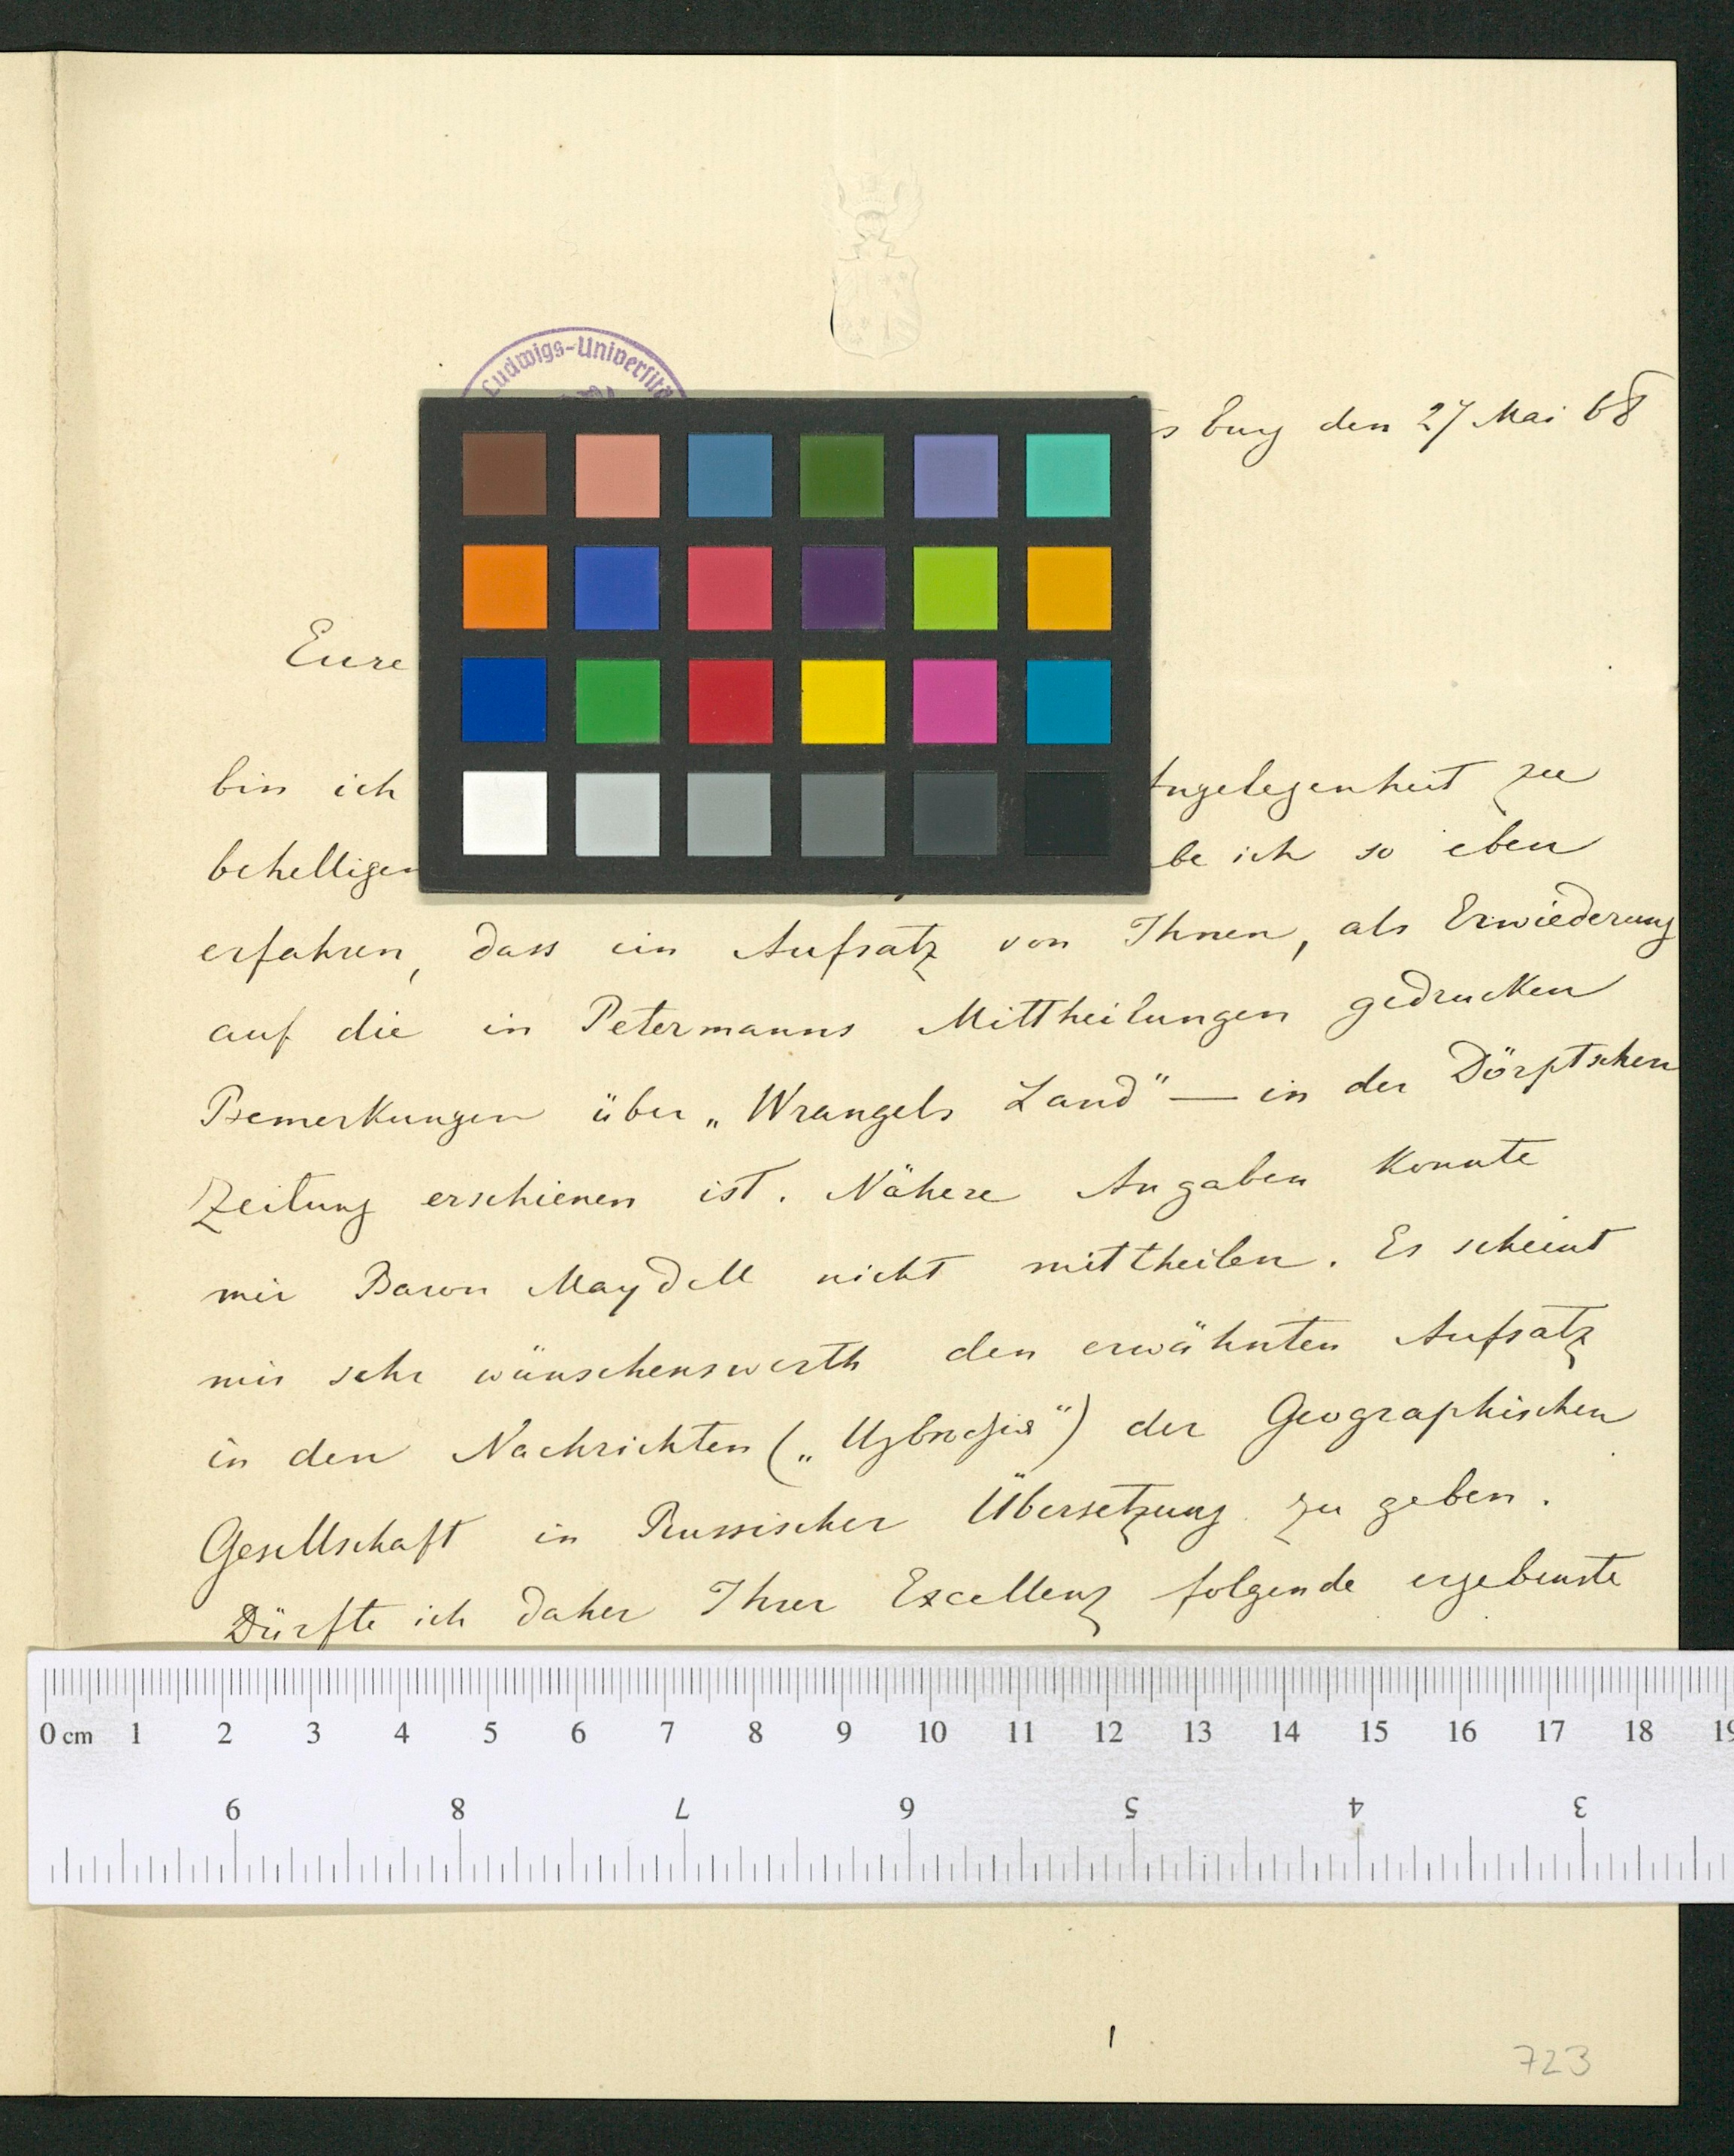 Ludwigs-Universitä
sburg den 27 Mai 68
Eure
bin ich Angelegenheit zu
behelligen be ich so eben
erfahren, dass ein Aufsatz von Ihnen, als Erwiederung
auf die in Petermanns Mittheilungen gedrucken
Bemerkungen über „Wrangels Land" — in der Dörptschen
Zeitung erschienen ist. Nähere Angaben konnte
mir Baron Maydell nicht mittheilen. Es scheint
mir sehr wünschenswerth den erwähnten Aufsatz
in den Nachrichten („Извѣстія") der Geographischen
Gesellschaft in Russischer Übersetzung zu geben.
Dürfte ich daher Ihrer Excellenz folgende ergebenste
0 cm 1 2 3 4 5 6 7 8 9 10 11 12 13 14 15 16 17 18 19
9 8 7 6 5 4 3
1
723